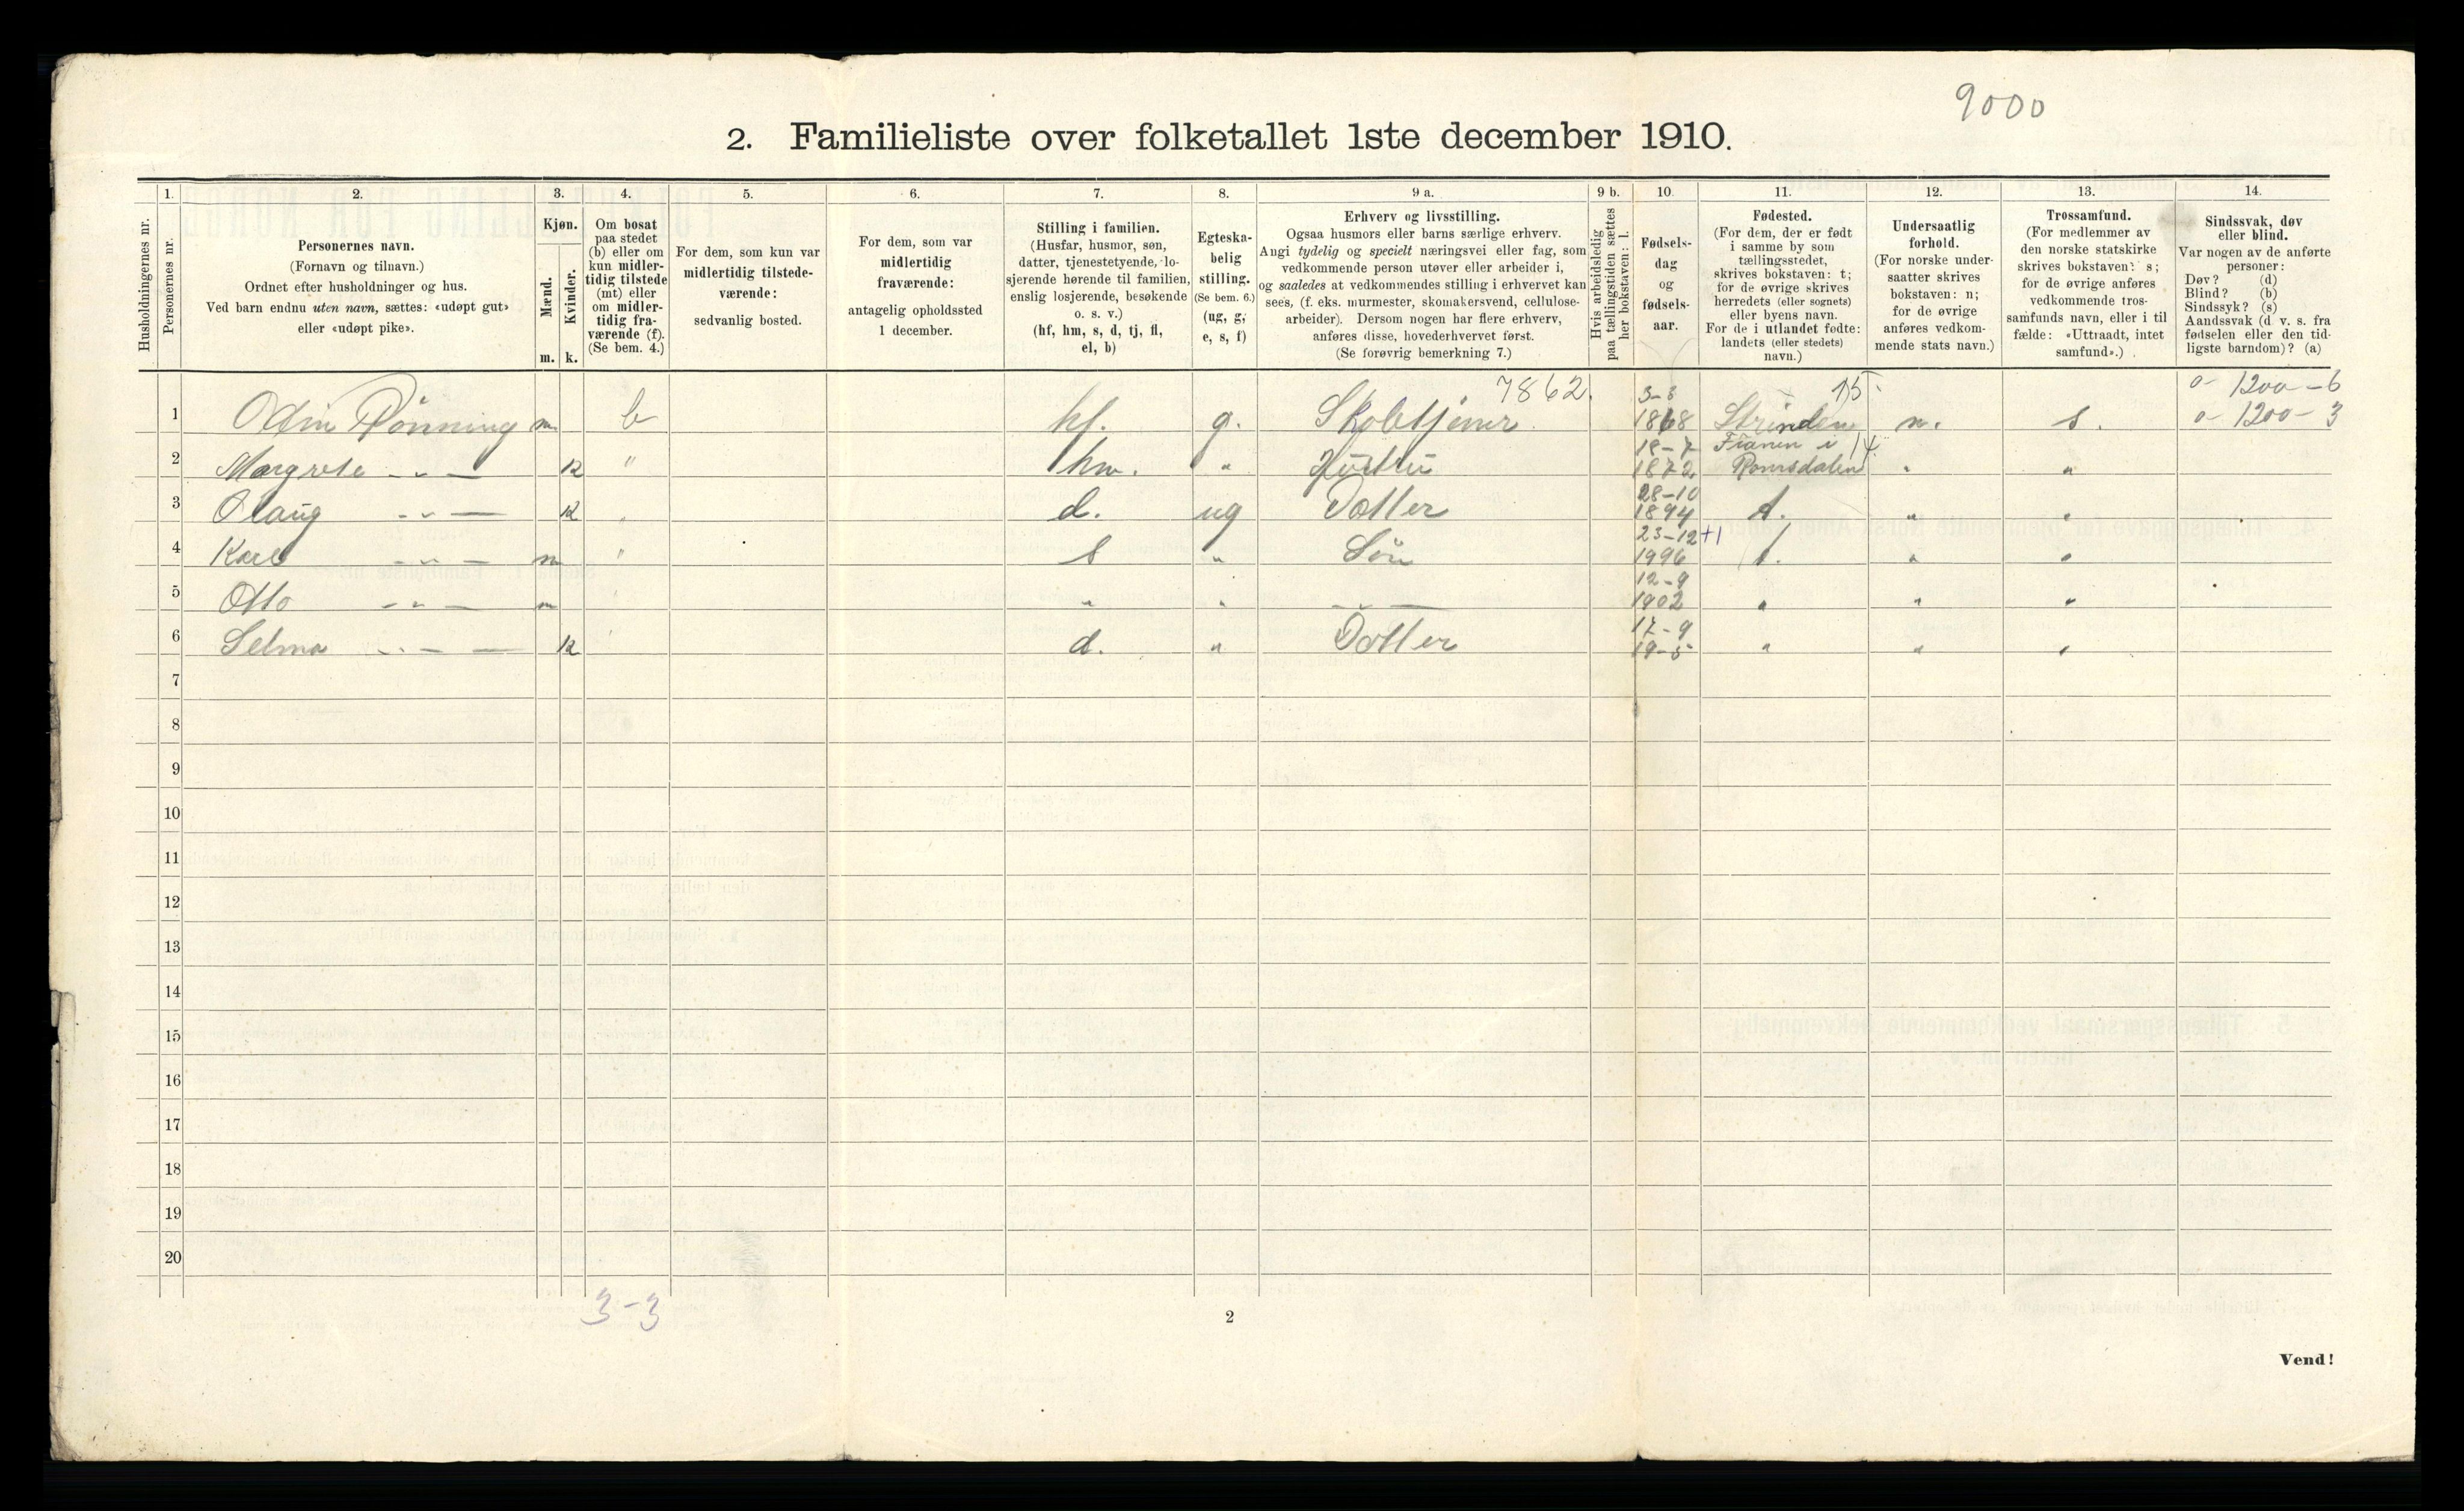 9000
2. Familieliste over folketallet 1ste december 1910.
Husholdningernes nr.
1.
Personernes nr.
2.
Personernes navn.
(Fornavn og tilnavn.)
Ordnet efter husholdninger og hus.
Ved barn endnu uten navn, sættes: «udøpt gut»
eller «udøpt pike».
3.
Kjøn.
Mænd.
m.
Kvinder.
k.
4.
Om bosat
paa stedet
(b) eller om
kun midler-
tidig tilstede
(mt) eller
om midler-
tidig fra-
værende (f).
(Se bem. 4.)
5.
For dem, som kun var
midlertidig tilstede-
værende:
sedvanlig bosted.
6.
For dem, som var
midlertidig
fraværende:
antagelig opholdssted
1 december.
7.
Stilling i familien.
(Husfar, husmor, søn,
datter, tjenestetyende, lo-
sjerende hørende til familien,
enslig losjerende, besøkende
o. s. v.)
(hf, hm, s, d, tj, fl,
el, b)
8.
Egteska-
belig
stilling.
(Se bem. 6.)
(ug, g,
e, s, f)
9 a.
Erhverv og livsstilling.
Ogsaa husmors eller barns særlige erhverv.
Angi tydelig og specielt næringsvei eller fag, som
vedkommende person utøver eller arbeider i,
og saaledes at vedkommendes stilling i erhvervet kan
sees, (f. eks. murmester, skomakersvend, cellulose-
arbeider). Dersom nogen har flere erhverv,
anføres disse, hovederhvervet først.
(Se forøvrig bemerkning 7.)
9 b.
Hvis arbeidsledig
paa tællingstiden sættes
her bokstaven: l.
10.
Fødsels-
dag
og
fødsels-
aar.
11.
Fødested.
(For dem, der er født
i samme by som
tællingsstedet,
skrives bokstaven: t;
for de øvrige skrives
herredets (eller sognets)
eller byens navn.
For de i utlandet fødte:
landets (eller stedets)
navn.)
12.
Undersaatlig
forhold.
(For norske under-
saatter skrives
bokstaven: n;
for de øvrige
anføres vedkom-
mende stats navn.)
13.
Trossamfund.
(For medlemmer av
den norske statskirke
skrives bokstaven: s;
for de øvrige anføres
vedkommende tros-
samfunds navn, eller i til
fælde: «Uttraadt, intet
samfund».)
14.
Sindssvak, døv
eller blind.
Var nogen av de anførte
personer:
Døv? (d)
Blind? (b)
Sindssyk? (s)
Aandssvak (d v. s. fra
fødselen eller den tid-
ligste barndom)? (a)
7862 3-3 15 0- 1200-6
1 Odin Rønning m. b hf. g. 1868 Strinden n. s. 0- 1200-3
18-7 Franen i 14
2 Margrete -"- k " hm. " Hustru 1872 Romsdalen " "
28-10
3 Olaug -"- k " d. ug Datter 1894 t. " "
23-12 +1
4 Karl -"- m " s " Søn 1996 t. " "
12-9
5 Otto -"- m " " " -"- 1902 " " "
17-9
6 Selma -"- k " d. " Datter 19-5 " " "
7
8
9
10
11
12
13
14
15
16
17
18
19
20
3-3
2
Vend!